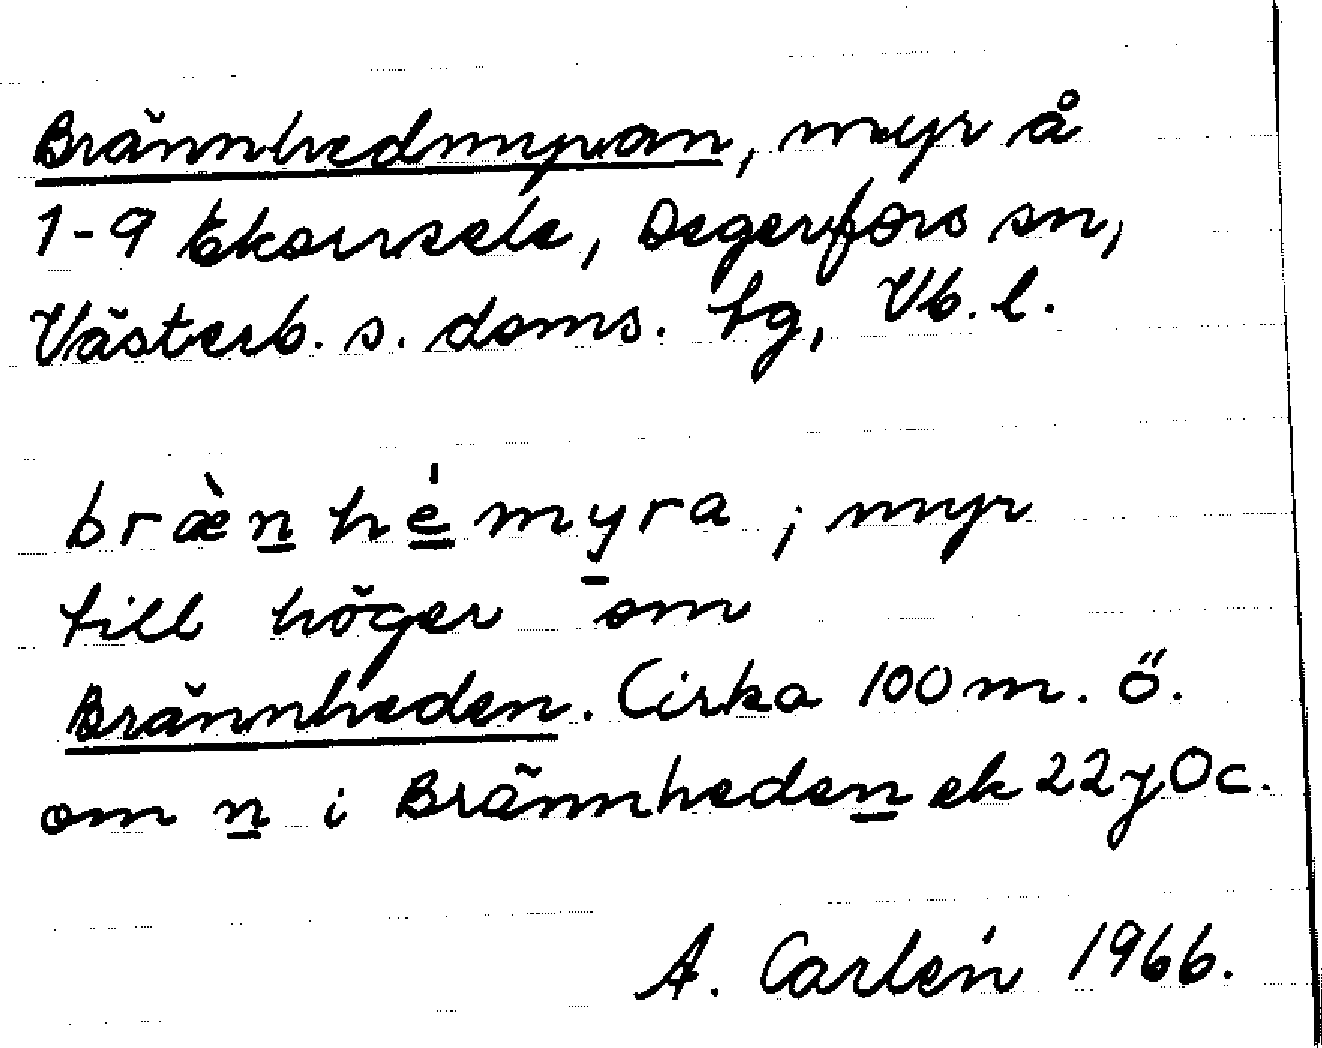 Brännhedmyran, myr å
1-9 Ekorrsele, Degerfors sn,
Västerb. s. doms. tg, Vb. l.
bræ̀n̲ hé̲my̲ra ; myr
till höger om
Brännheden. Cirka 100 m. ö.
om n̲ i Brännheden̲ ek 22 y 0 c.
A. Carlén 1966.